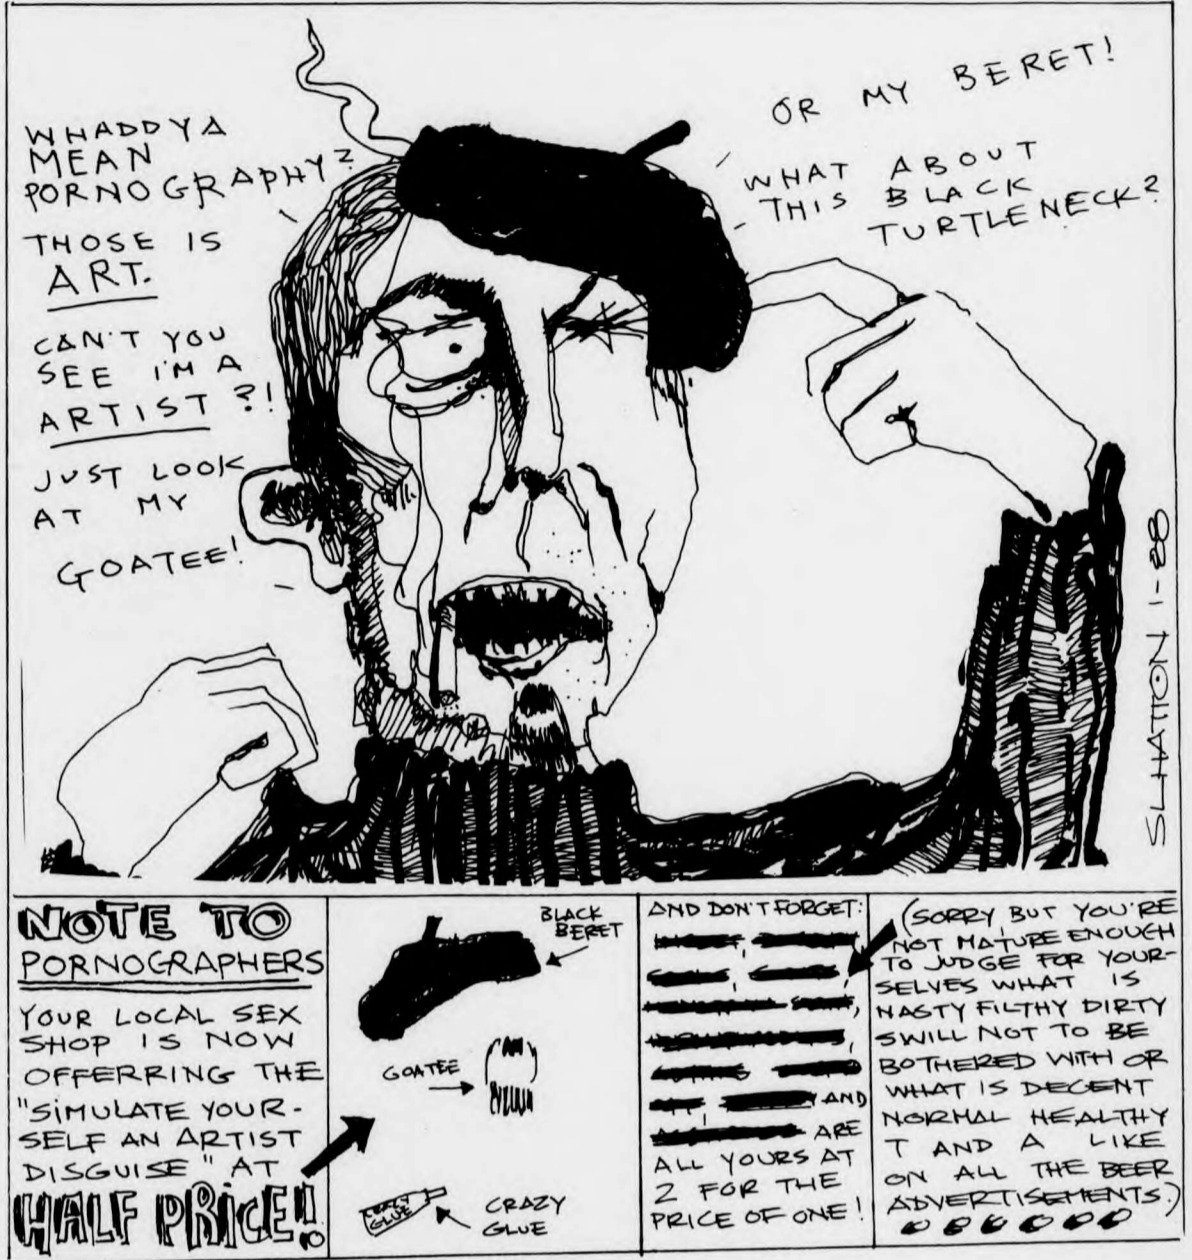 WHADDYA
MEAN
PORNOGRAPHY?
THOSE IS
ART.
CAN'T YOU
SEE I'M A
ARTIST?!
JUST LOOK
AT MY
GOATEE!
OR MY BERET!
WHAT ABOUT
THIS BLACK
TURTLENECK?
1-88
NOTE TO
PORNOGRAPHERS
YOUR LOCAL SEX
SHOP IS NOW
OFFERRING THE
"SIMULATE YOUR-
SELF AN ARTIST
DISGUISE" AT
HALF PRICE!
BLACK
BERET
GOATEE
CRAZY
GLUE
AND DON'T FORGET:
AND
ARE
ALL YOURS AT
2 FOR THE
PRICE OF ONE!
(SORRY, BUT YOU'RE
NOT MATURE ENOUGH
TO JUDGE FOR YOUR-
SELVES WHAT IS
NASTY FILTHY DIRTY
SWILL NOT TO BE
BOTHERED WITH OR
WHAT IS DECENT
NORMAL HEALTHY
T AND A LIKE
ON ALL THE BEER
ADVERTISEMENTS.)